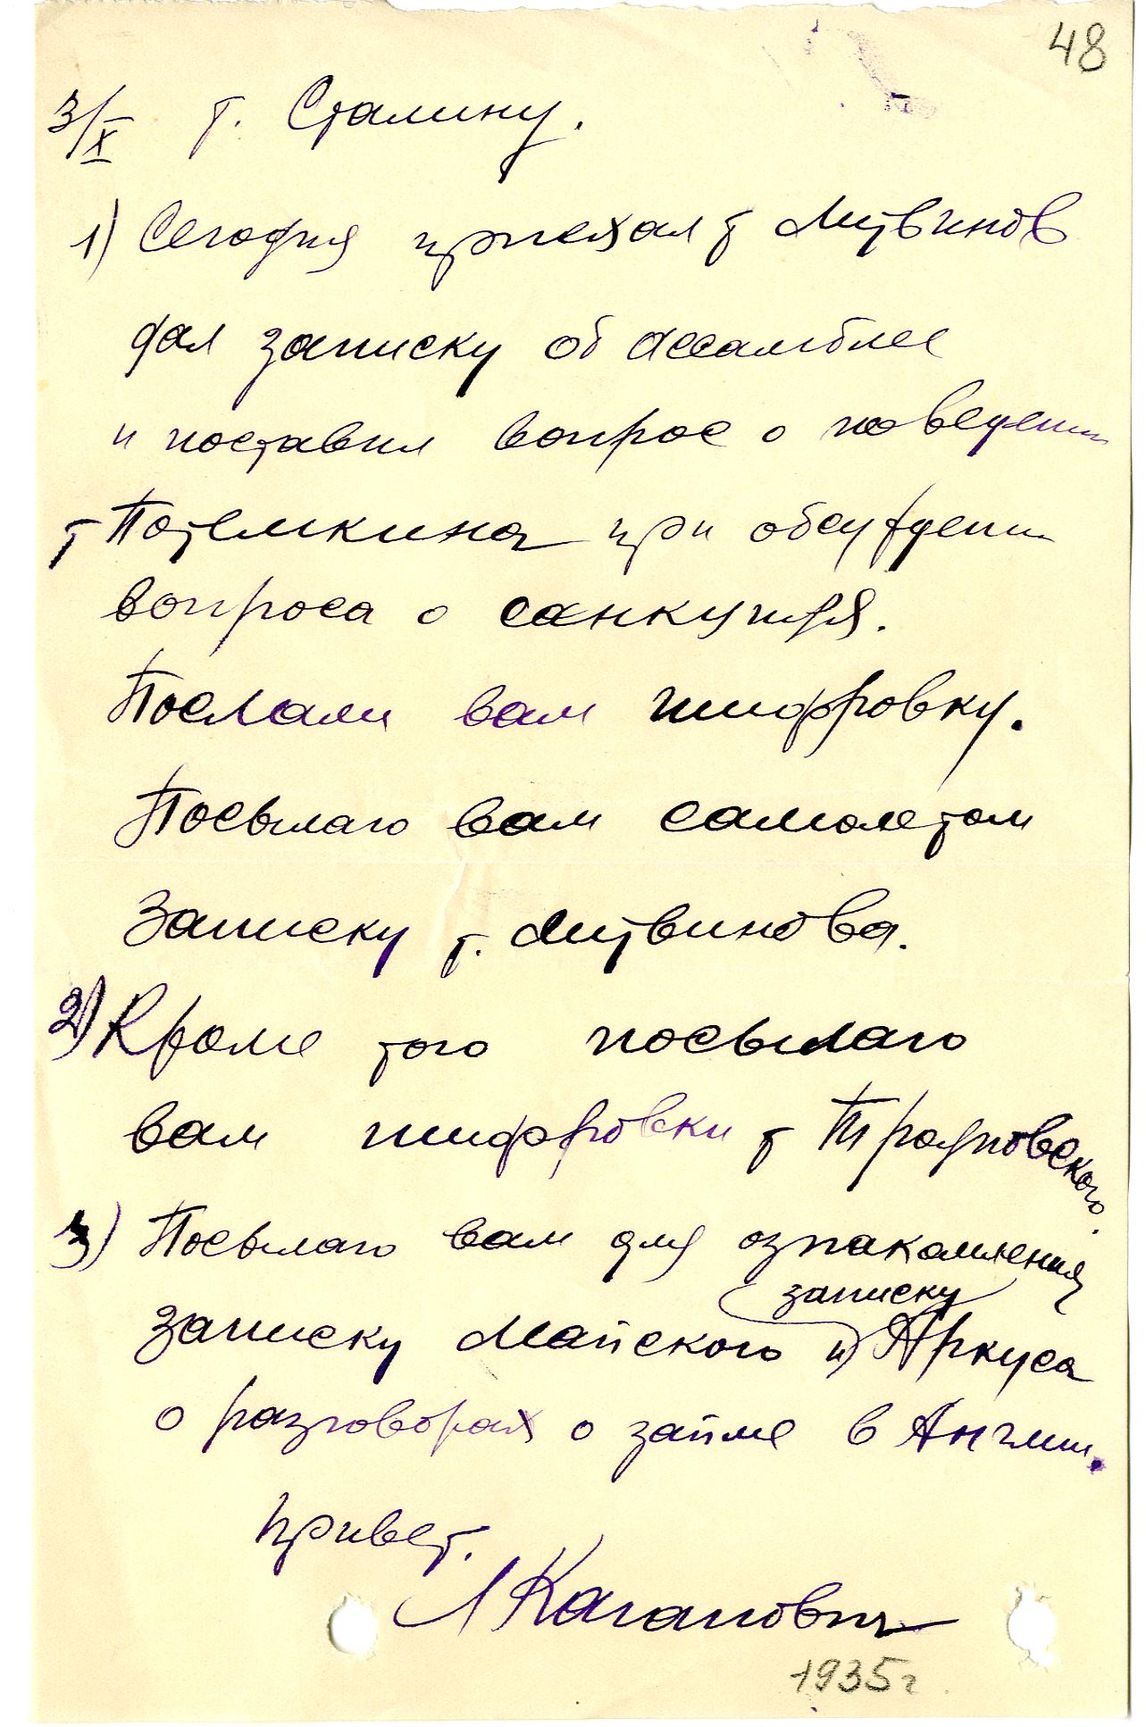 48
3/X т. Сталину.
1) Сегодня приехал т Литвинов
дал записку об ассамблее
и поставил вопрос о поведении
т Потемкина при обсуждении
вопроса о санкциях.
Послали вам шифровку.
Посылаю вам самолетом
записку т. Литвинова.
2) Кроме того посылаю
вам шифровки т Трояновского.
3) Посылаю вам для ознакомления
записку
записку Майского и Аркуса
о разговорах о займе в Англии.
Привет.
Л Каганович
1935 г